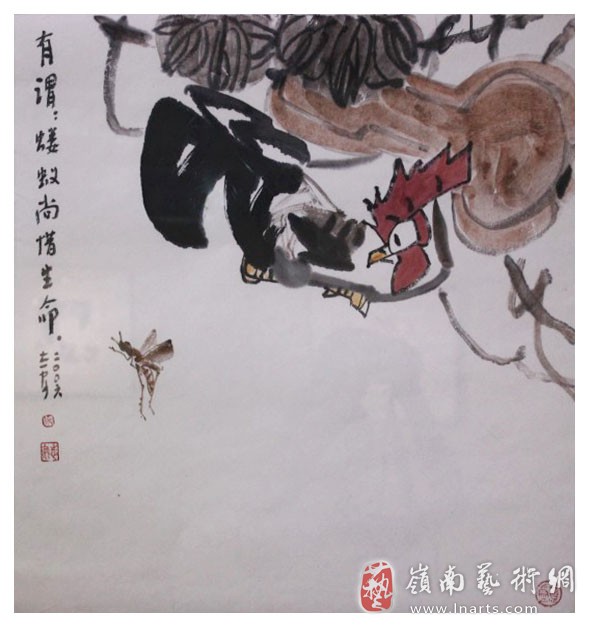 有谓：蝼蚁尚惜生命。
二〇〇六
藝
嶺南藝術網
www.lnarts.com